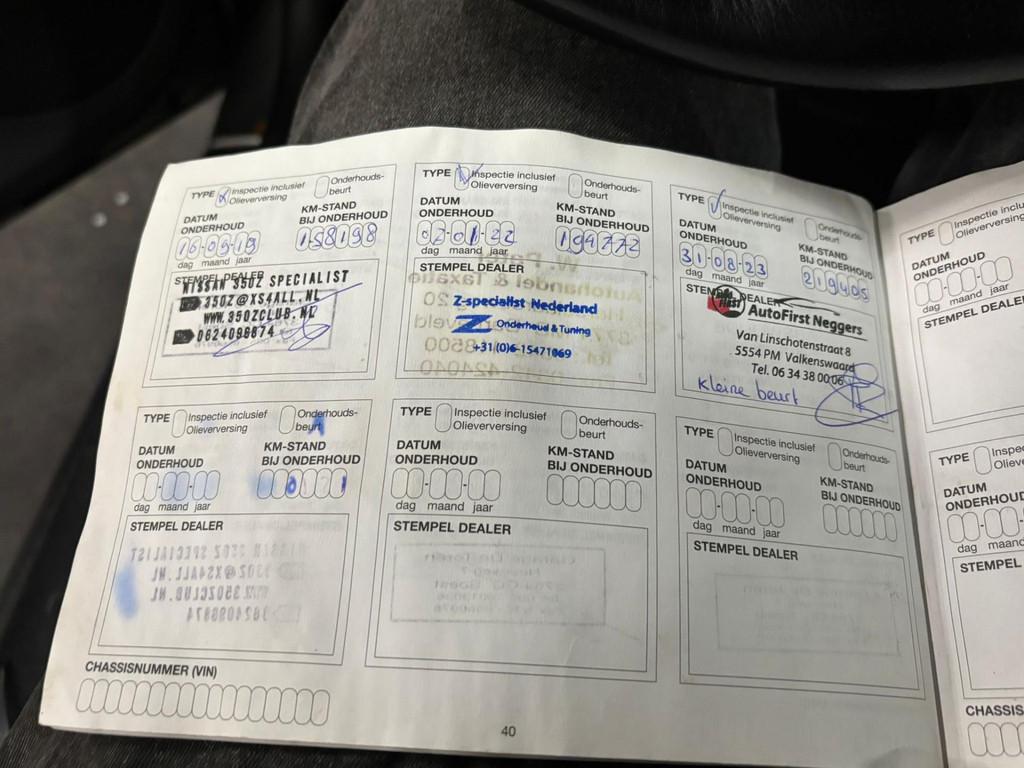 TYPE Inspectie inclusief Olieverversing Onderhouds-beurt
DATUM ONDERHOUD
KM-STAND BIJ ONDERHOUD
16-09-19
158198
dag maand jaar
STEMPEL DEALER
NISSAN 350Z SPECIALIST
350Z@XS4ALL.NL
WWW.350ZCLUB.NL
0624098874
TYPE Inspectie inclusief Olieverversing Onderhouds-beurt
DATUM ONDERHOUD
KM-STAND BIJ ONDERHOUD
07-01-22
194772
dag maand jaar
STEMPEL DEALER
Z-specialist Nederland
Z Onderhoud & Tuning
+31 (0)6-15471069
TYPE Inspectie inclusief Olieverversing Onderhouds-beurt
DATUM ONDERHOUD
KM-STAND BIJ ONDERHOUD
31-08-23
219405
dag maand jaar
STEMPEL DEALER
AutoFirst Neggers
Van Linschotenstraat 8
5554 PM Valkenswaard
Tel. 06 34 38 00 06
Kleine beurt
TYPE Inspectie inclusief Olieverversing Onderhouds-beurt
DATUM ONDERHOUD
KM-STAND BIJ ONDERHOUD
dag maand jaar
STEMPEL DEALER
TYPE Inspectie inclusief Olieverversing Onderhouds-beurt
DATUM ONDERHOUD
KM-STAND BIJ ONDERHOUD
dag maand jaar
STEMPEL DEALER
TYPE Inspectie inclusief Olieverversing Onderhouds-beurt
DATUM ONDERHOUD
KM-STAND BIJ ONDERHOUD
dag maand jaar
STEMPEL DEALER
CHASSISNUMMER (VIN)
40
TYPE
DATUM ONDERHOUD
dag maand
STEMPEL DEALER
TYPE
DATUM ONDERHOUD
dag maand
STEMPEL
CHASSIS